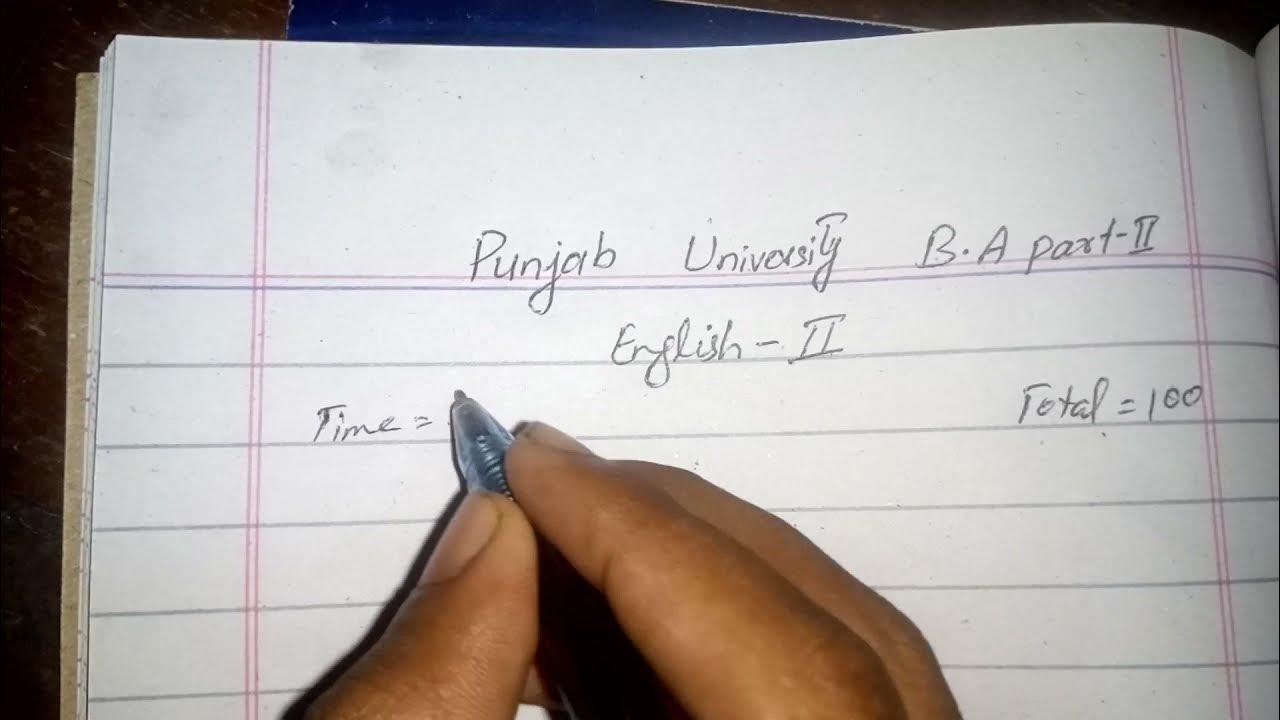 Punjab University B.A part-II
English - II
Time =
Total = 100